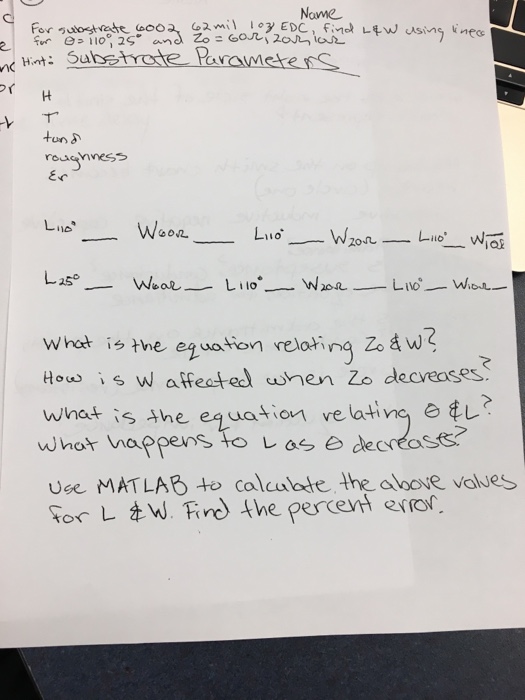 Name
For substrate 6002 62mil 1oz EDC, find L&W using linecc
for θ=110°, 25° and Zo = 60Ω, 20Ω, 10Ω
Hint: Substrate Parameters
H
T
tanδ
roughness
Er
L110° __ W60Ω __ L110° __ W20Ω __ L110° __ W10Ω
L25° __ W60Ω __ L110° __ W20Ω __ L110° __ W10Ω __
What is the equation relating Zo & W?
How is W affected when Zo decreases?
What is the equation relating θ & L?
What happens to L as θ decreases?
Use MATLAB to calculate the above values
for L & W. Find the percent error.